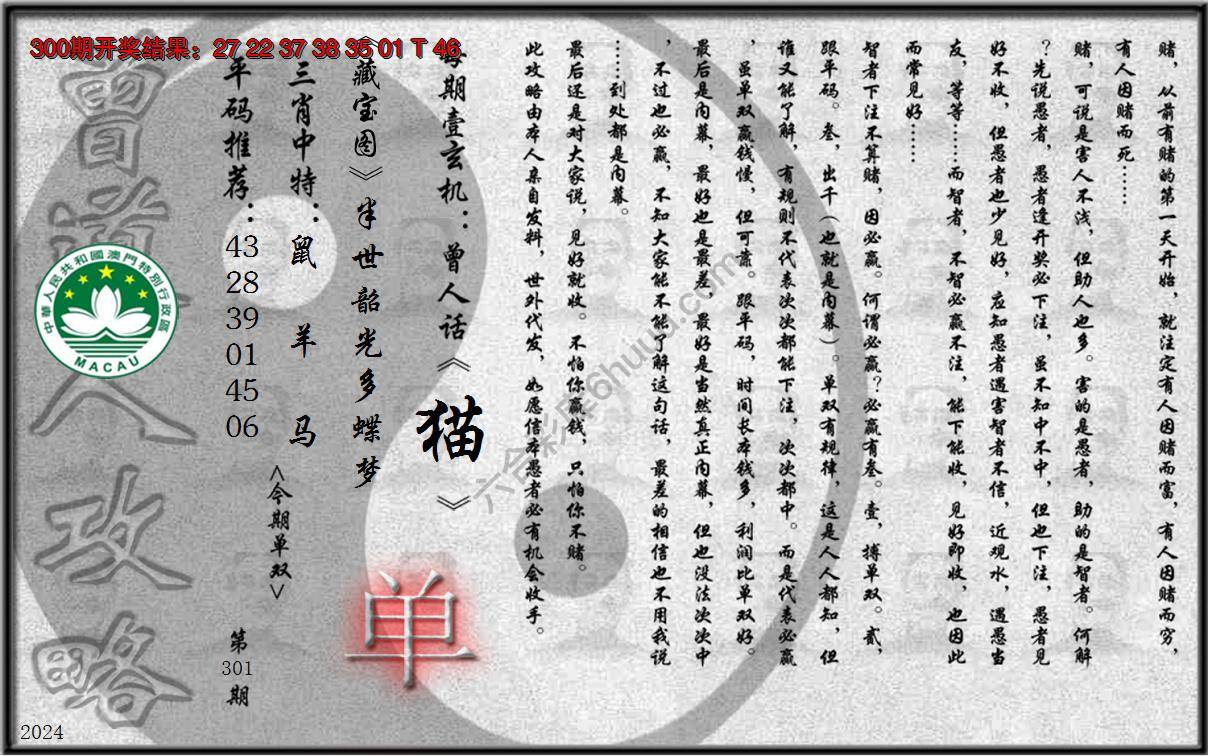 300期开奖结果：27 22 37 38 35 01 T 46
赌，从前有赌的第一天开始，就注定有人因赌而富，有人因赌而穷，
有人因赌而死……
赌，可说是害人不浅，但助人也多。害的是愚者，助的是智者。何解
？先说愚者，愚者逢开奖必下注，虽不知中不中，但也下注，愚者见
好不收，但愚者也少见好，应知愚者遇害智者不信，近观水，遇愚当
友，等等……而智者，不智必赢不注，能下能收，见好即收，也因此
而常见好……
智者下注不算赌，因必赢。何谓必赢？必赢有叁。壹，搏单双。贰，
跟平码。叁，出千（也就是内幕）。单双有规律，这是人人都知，但
谁又能了解，有规则不代表次次都能下注，次次都中。而是代表必赢
，虽单双赢钱慢，但可靠。跟平码，时间长本钱多，利润比单双好。
最后是内幕，最好也是最差，最好是当然真正内幕，但也没法次次中
，不过也必赢，不知大家能不能了解这句话，最差的相信也不用我说
……到处都是内幕。
最后还是对大家说，见好就收。不怕你赢钱，只怕你不赌。
此攻略由本人亲自发料，世外代发，如愿信本愚者必有机会收手。
每期壹玄机：曾人话《猫》
《藏宝图》半世韶光多蝶梦
三肖中特：鼠 羊 马
平码推荐：43 28 39 01 45 06
<今期单双>
单
第301期
曾道人攻略
中華人民共和國澳門特別行政區
MACAU
六合彩库6huuu.com
2024